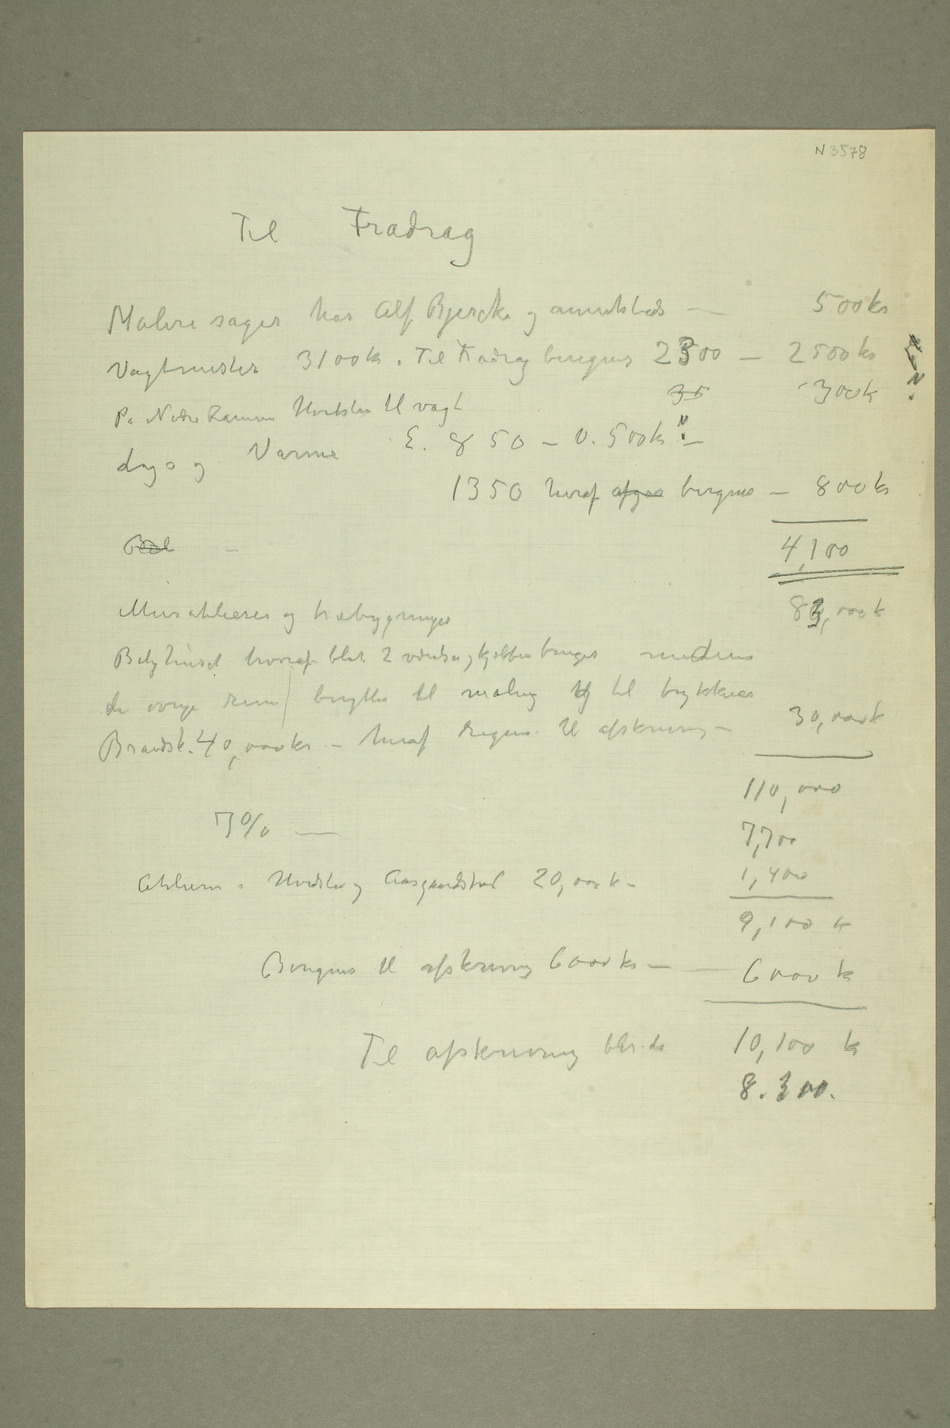 N 3578
Til Fradrag
Malersager hos Alf Bjercke og annetsteds — 500 kr
Vagtmester 3100 k. Til Fradrag beregnes 2500 — 2500 kr
På Nedre Ramme Hvitsten til vagt 35 300 k
Lys og Varme E. 850 — V. 500 kr —
1350 hvoraf afgaar beregnes — 800 kr
4,100
Muratelierer og træbygninger 80,000 k
Bolighuset hvoraf blot 2 værelser og kjøkken bruges medens
de øvrige rum benyttes til maling og til trykkning
Brandst. 40,000 kr. — heraf regnes til afskrivning — 30,000 k
110,000
7% — 7,700
Atelier i Hvidsten og Aasgaardstrand 20,000 k — 1,400
9,100 k
Beregnes til afskrivning 6000 kr — 6000 k
Til afskrivning blir da 10,100 k
8.300.